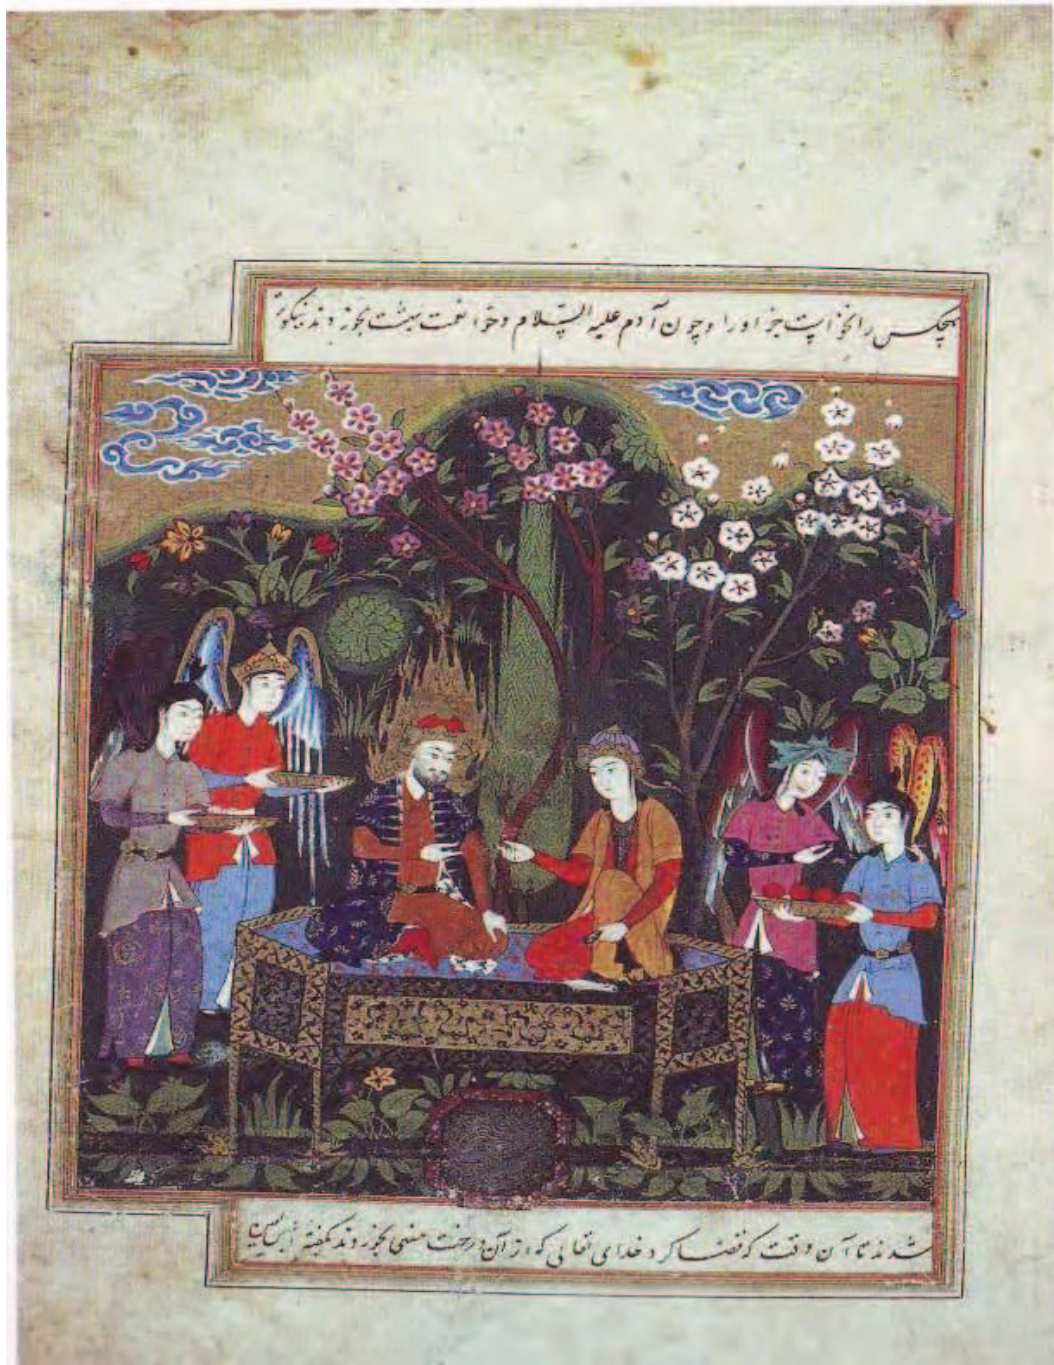 هیچکس را نخواست جز او را و چون آدم علیه السّلام و حوا نعمت بهشت بخوردند نیکو
شدند تا آن وقت که قضا کرد خدای تعالی که از آن درخت منهی بخوردند بگفتهٔ